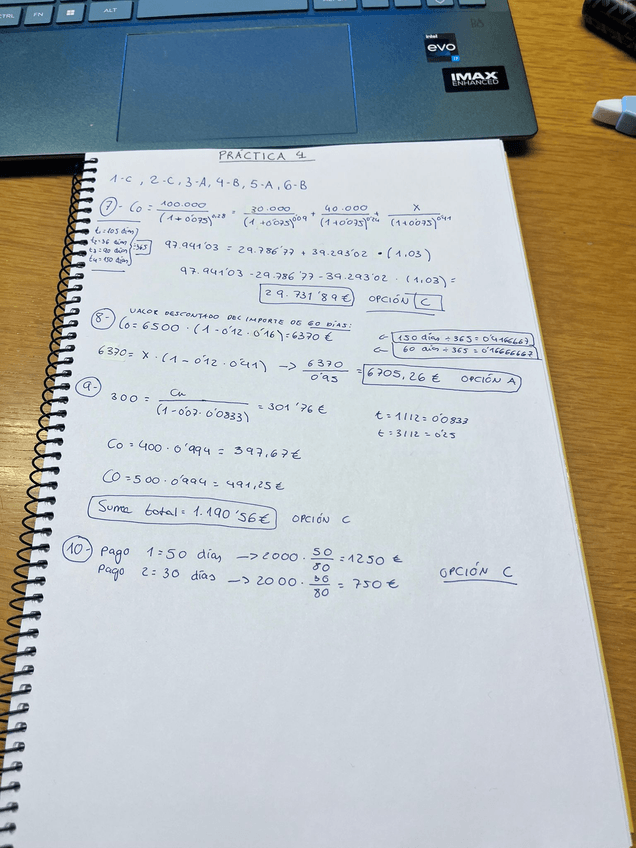 CTRL
FN
ALT
intel
evo
i7
IMAX
ENHANCED
PRÁCTICA 4
1-C, 2-C, 3-A, 4-B, 5-A, 6-B
7- Co = 100.000 / (1+0'075)^0'28 = 30.000 / (1+0'075)^0'09 + 40.000 / (1+0'075)^0'24 + X / (1+0'075)^0'41
t1=103 días
t2=36 días
t3=90 días
t4=150 días
÷365
97.941'03 = 29.786'77 + 39.293'02 · (1,03)
97.941'03 - 29.786'77 - 39.293'02 · (1,03) =
29.731'89 € OPCIÓN C
8- VALOR DESCONTADO DEL IMPORTE DE 60 DÍAS:
Co = 6500 · (1 - 0'12 · 0'16) = 6370 €
150 días ÷ 365 = 0'4166667
60 días ÷ 365 = 0'16666667
6370 = X · (1 - 0'12 · 0'41) → 6370 / 0'95 = 6705,26 € OPCIÓN A
9-
300 = Cn / (1 - 0'07 · 0'0833) = 301'76 €
t = 1/12 = 0'0833
t = 3/12 = 0'25
Co = 400 · 0'994 = 397,67 €
CO = 500 · 0'994 = 491,25 €
Suma total = 1.190'56 € OPCIÓN C
10- Pago 1 = 50 días → 2000 · 50/80 = 1250 €
Pago 2 = 30 días → 2000 · 30/80 = 750 €
OPCIÓN C